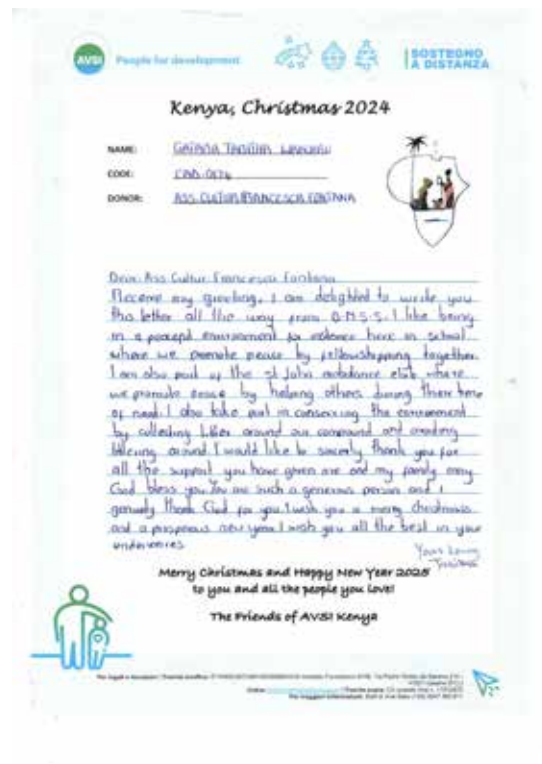 AVSI
People for development
SOSTEGNO
A DISTANZA
Kenya, Christmas 2024
NAME: GATANA TABITHA
CODE:
DONOR: ASS. CULTUR. FRANCESCA FONTANA
Dear Ass Cultur Francesca Fontana
Receive my greeting, I am delighted to write you
this letter all the way from O.M.S.S. I like being
in a environment here in school
where we promote peace by fellowshipping together.
I am also part of the st John ambulance club where
we promote peace by helping others during there time
of need. I also take part in conserving the environment
by collecting litter around our compound and
littering around. I would like to thank you for
all the support you have given me and my family may
God bless you. You are such a generous person and I
thank God for you. I wish you a merry christmas
and a prosperous new year. I wish you all the best in your
Yours
Merry Christmas and Happy New Year 2025
to you and all the people you love!
The Friends of AVSI Kenya